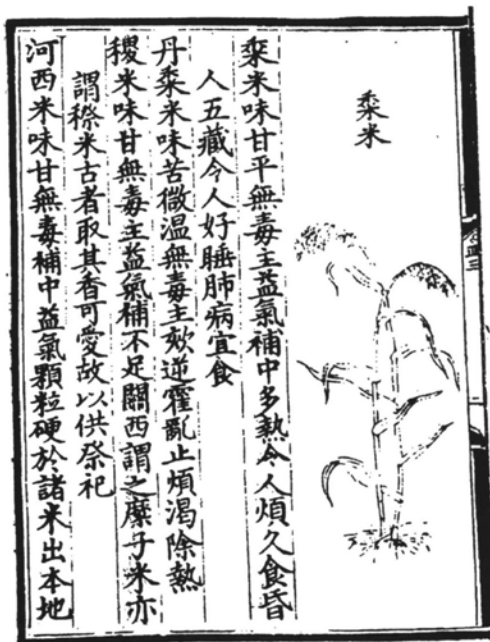 黍米
黍米味甘平無毒主益氣補中多熱令人煩久食昏
人五藏令人好睡肺病宜食
丹黍米味苦微温無毒主欬逆霍亂止煩渴除熱
稷米味甘無毒主益氣補不足關西謂之糜子米亦
謂穄米古者取其香可愛故以供祭祀
河西米味甘無毒補中益氣顆粒硬於諸米出本地